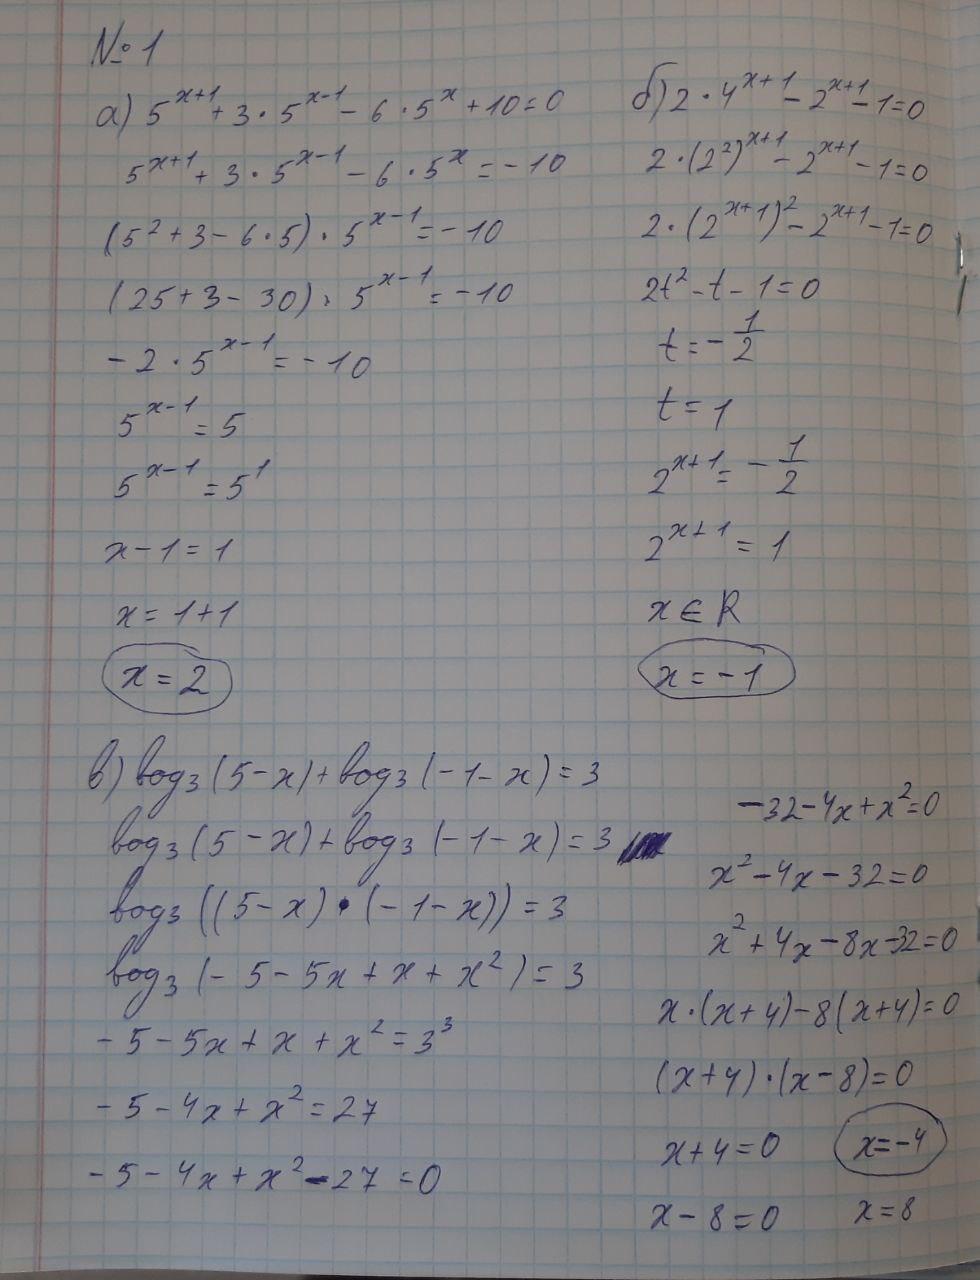 №1
а) 5^(x+1) + 3 · 5^(x-1) - 6 · 5^x + 10 = 0
5^(x+1) + 3 · 5^(x-1) - 6 · 5^x = -10
(5² + 3 - 6 · 5) · 5^(x-1) = -10
(25 + 3 - 30) · 5^(x-1) = -10
-2 · 5^(x-1) = -10
5^(x-1) = 5
5^(x-1) = 5¹
x - 1 = 1
x = 1 + 1
x = 2
б) 2 · 4^(x+1) - 2^(x+1) - 1 = 0
2 · (2²)^(x+1) - 2^(x+1) - 1 = 0
2 · (2^(x+1))² - 2^(x+1) - 1 = 0
2t² - t - 1 = 0
t = -1/2
t = 1
2^(x+1) = -1/2
2^(x+1) = 1
x ∈ R
x = -1
в) log₃(5 - x) + log₃(-1 - x) = 3
log₃(5 - x) + log₃(-1 - x) = 3
log₃((5 - x) · (-1 - x)) = 3
log₃(-5 - 5x + x + x²) = 3
-5 - 5x + x + x² = 3³
-5 - 4x + x² = 27
-5 - 4x + x² - 27 = 0
-32 - 4x + x² = 0
x² - 4x - 32 = 0
x² + 4x - 8x - 32 = 0
x · (x + 4) - 8(x + 4) = 0
(x + 4) · (x - 8) = 0
x + 4 = 0 x = -4
x - 8 = 0 x = 8